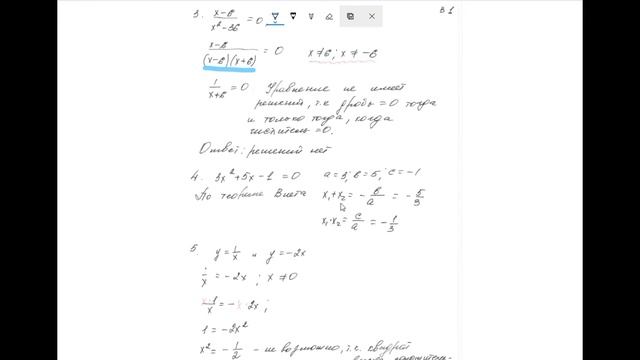 В 1
3. x-6/x²-36 = 0
x-6/(x-6)(x+6) = 0 x≠6; x≠-6
1/x+6 = 0 Уравнение не имеет
решений, т.к дробь = 0 тогда
и только тогда, когда
числитель = 0.
Ответ: решений нет
4. 3x²+5x-1 = 0 a=3; в=5; c=-1
По теореме Виета x₁+x₂ = -в/a = -5/3
x₁·x₂ = c/a = -1/3
5. y = 1/x и y = -2x
1/x = -2x ; x≠0
x·1/x = -x·2x;
1 = -2x²
x² = -1/2 - не возможно, т.к. квадрат